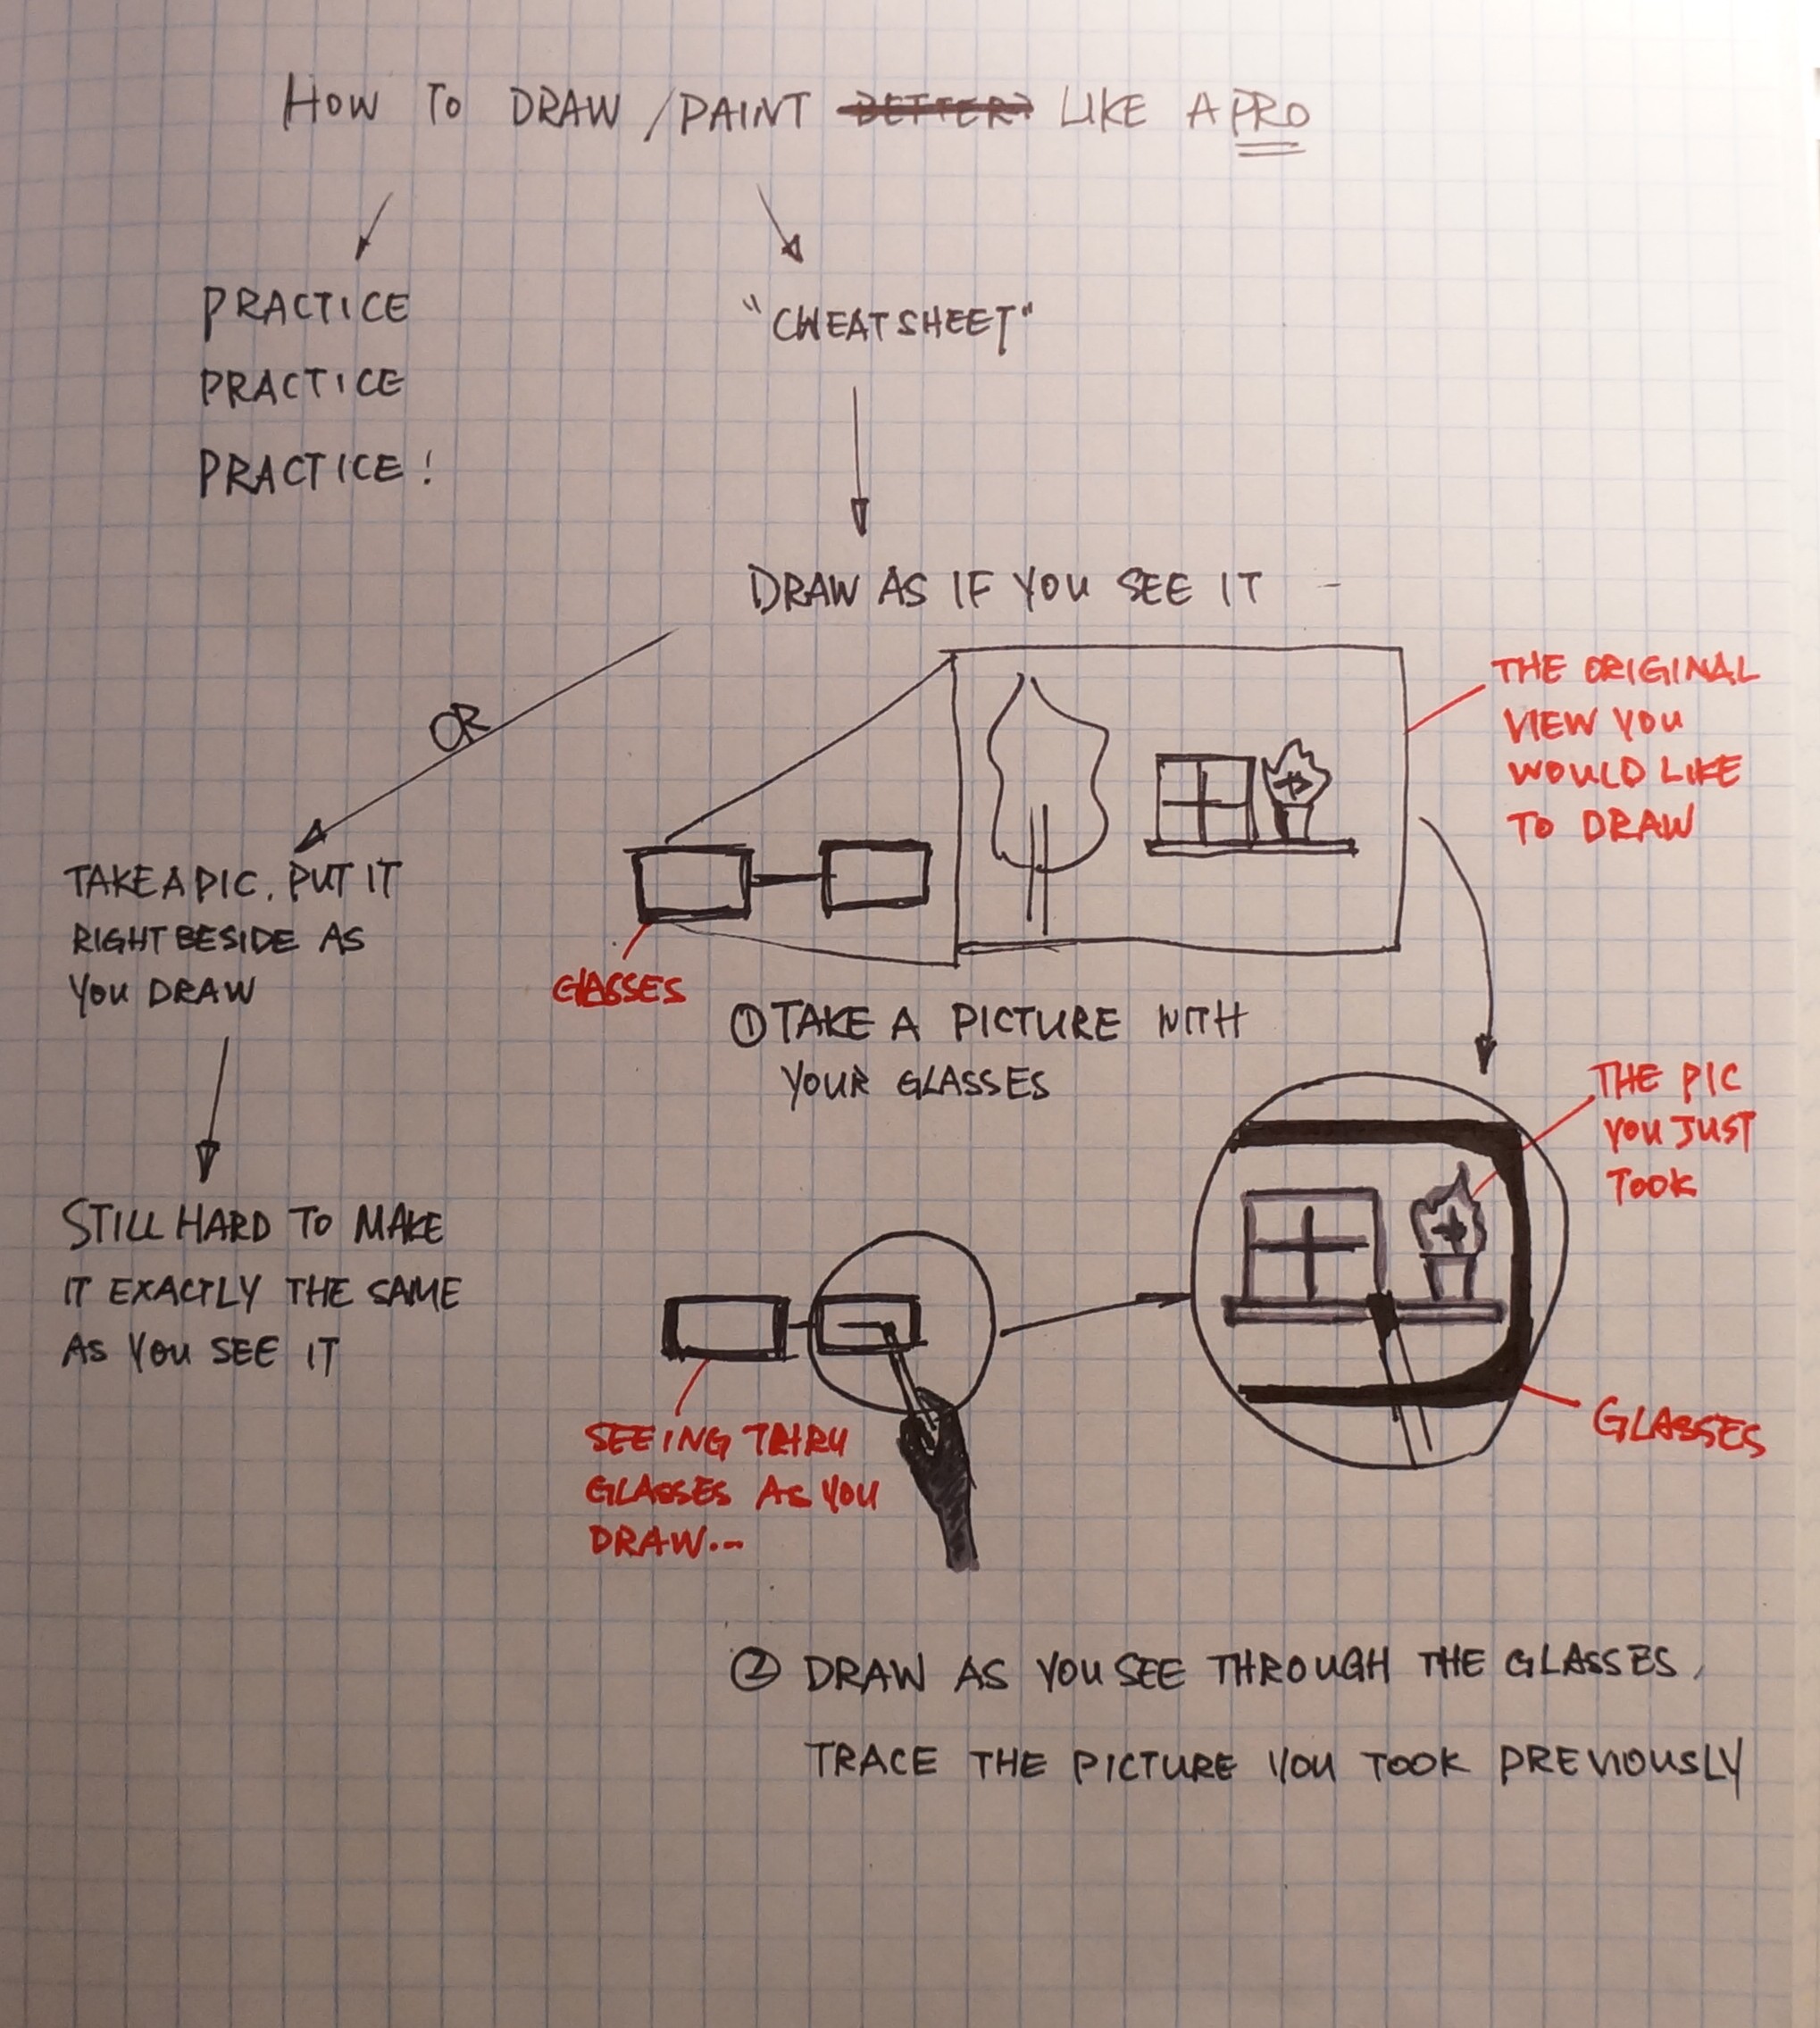 HOW TO DRAW / PAINT BETTER? LIKE A PRO
PRACTICE
PRACTICE
PRACTICE!
"CHEATSHEET"
DRAW AS IF YOU SEE IT
OR
TAKE A PIC. PUT IT
RIGHT BESIDE AS
YOU DRAW
STILL HARD TO MAKE
IT EXACTLY THE SAME
AS YOU SEE IT
THE ORIGINAL
VIEW YOU
WOULD LIKE
TO DRAW
GLASSES
① TAKE A PICTURE WITH
YOUR GLASSES
THE PIC
YOU JUST
TOOK
GLASSES
SEEING THRU
GLASSES AS YOU
DRAW...
② DRAW AS YOU SEE THROUGH THE GLASSES,
TRACE THE PICTURE YOU TOOK PREVIOUSLY